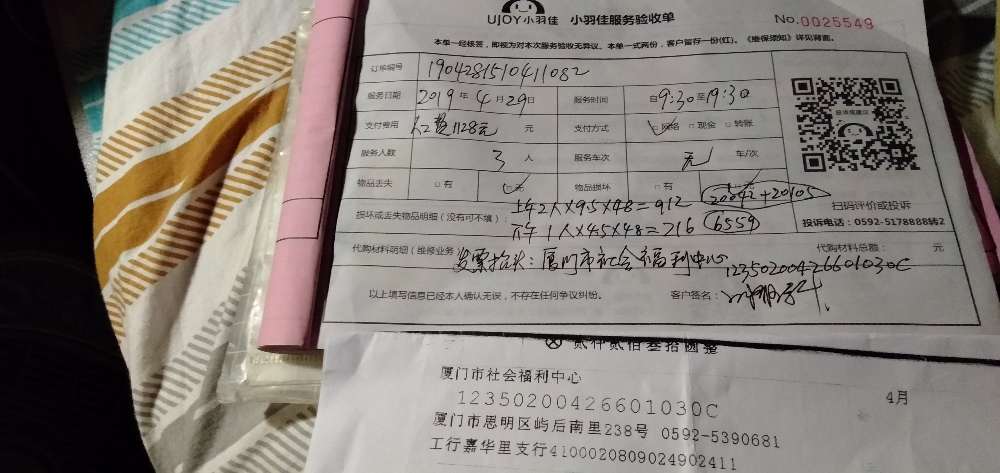 UJOY小羽佳 小羽佳服务验收单
No.0025549
本单一经核签，即视为对本次服务验收无异议。本单一式两份，客户留存一份(红)。《维保须知》详见背面。
订单编号 1904281510411082
服务日期 2019年4月29日 服务时间 自9:30至19:30
支付费用 人工费1128元 元 支付方式 ☑网络 □现金 □转账
服务人数 3人 服务车次 无 车/次
物品丢失 □有 ☑无 物品损坏 □有
20042+20105
扫码评价或投诉
损坏或丢失物品明细（没有可不填）： 上午2人×9.5×48=912
6559
投诉电话：0592-5178888转2
下午1人×4.5×48=216
代购材料明细（维修业务） 代购材料总额： 元
发票抬头：厦门市社会福利中心
12350200426601030C
以上填写信息已经本人确认无误，不存在任何争议纠纷。 客户签名：
贰仟贰佰叁拾圆整
厦门市社会福利中心 4月
12350200426601030C
厦门市思明区屿后南里238号 0592-5390681
工行嘉华里支行4100020809024902411